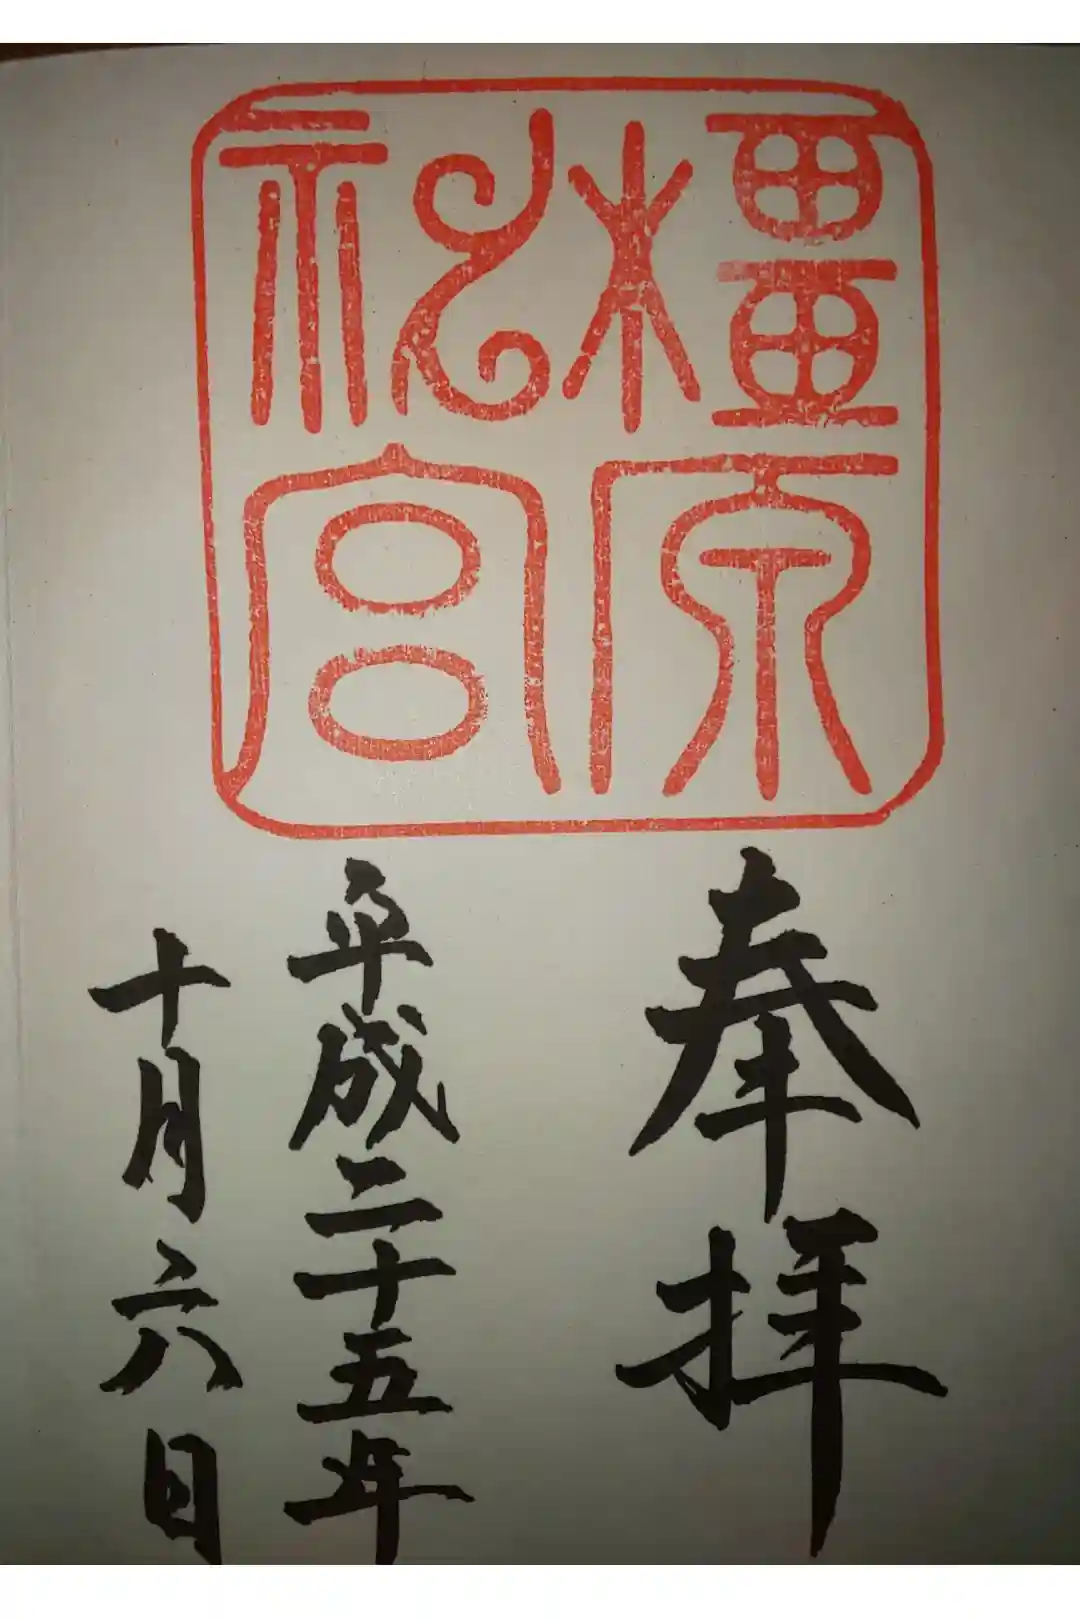 橿原
神宮
奉拝
平成二十五年
十月六日